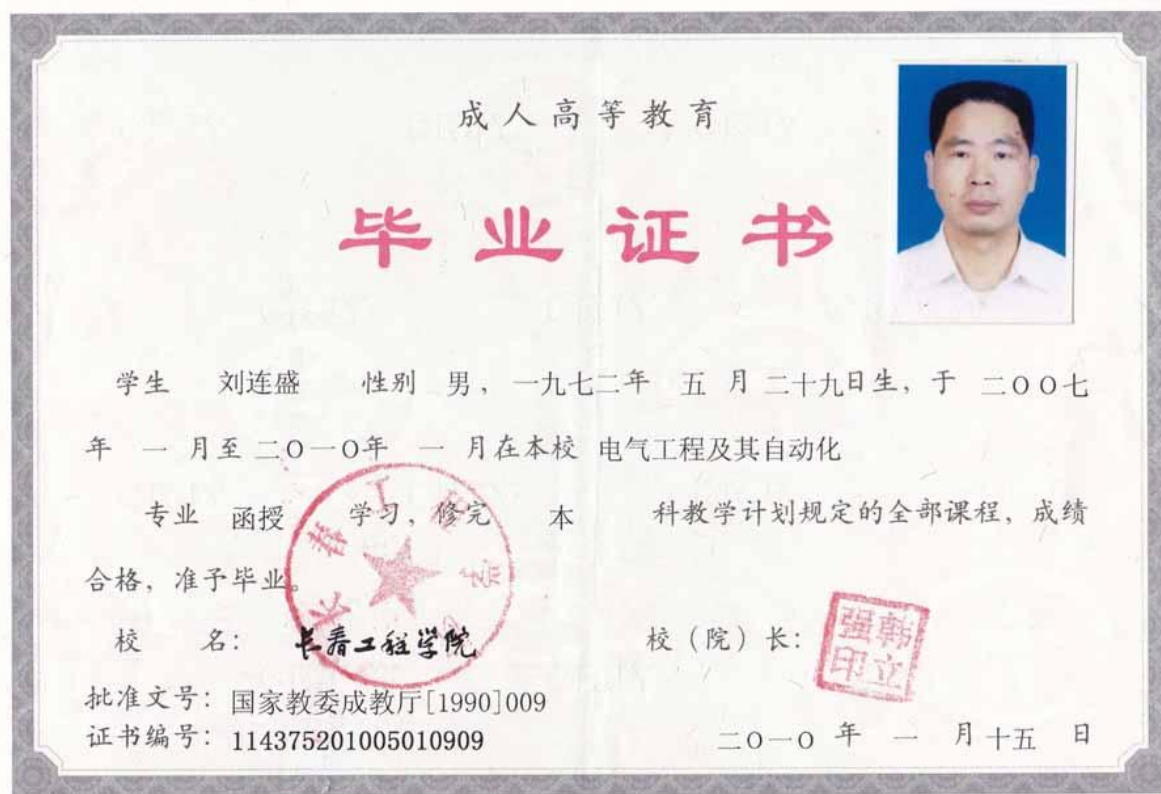 成人高等教育
毕业证书
学生 刘连盛 性别 男，一九七二年 五 月 二十九日生，于 二〇〇七
年 一 月至 二〇一〇年 一 月在本校 电气工程及其自动化
专业 函授 学习，修完 本 科教学计划规定的全部课程，成绩
合格，准予毕业。
校 名： 长春工程学院
校（院）长： 韩立强印
批准文号：国家教委成教厅[1990]009
证书编号：114375201005010909
二〇一〇 年 一 月 十五 日